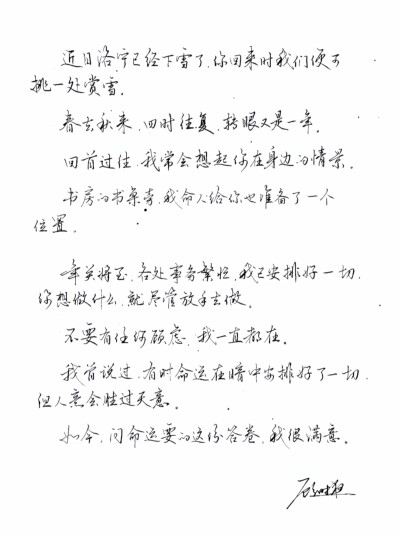 近日洛宁已经下雪了,你回来时我们便可
挑一处赏雪。
春去秋来,四时往复,转眼又是一年。
回首过往,我常会想起你在身边的情景。
书房的书桌旁,我命人给你也准备了一个
位置。
年关将至,各处事务繁忙,我已安排好一切,
你想做什么,就尽管放手去做。
不要有任何顾虑,我一直都在。
我曾说过,有时命运在暗中安排好了一切,
但人意会胜过天意。
如今,问命运要的这份答卷,我很满意。
顾时夜